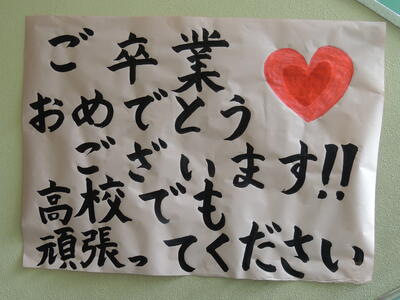 ご卒業
おめでとう
ございます!!
高校でも
頑張ってください